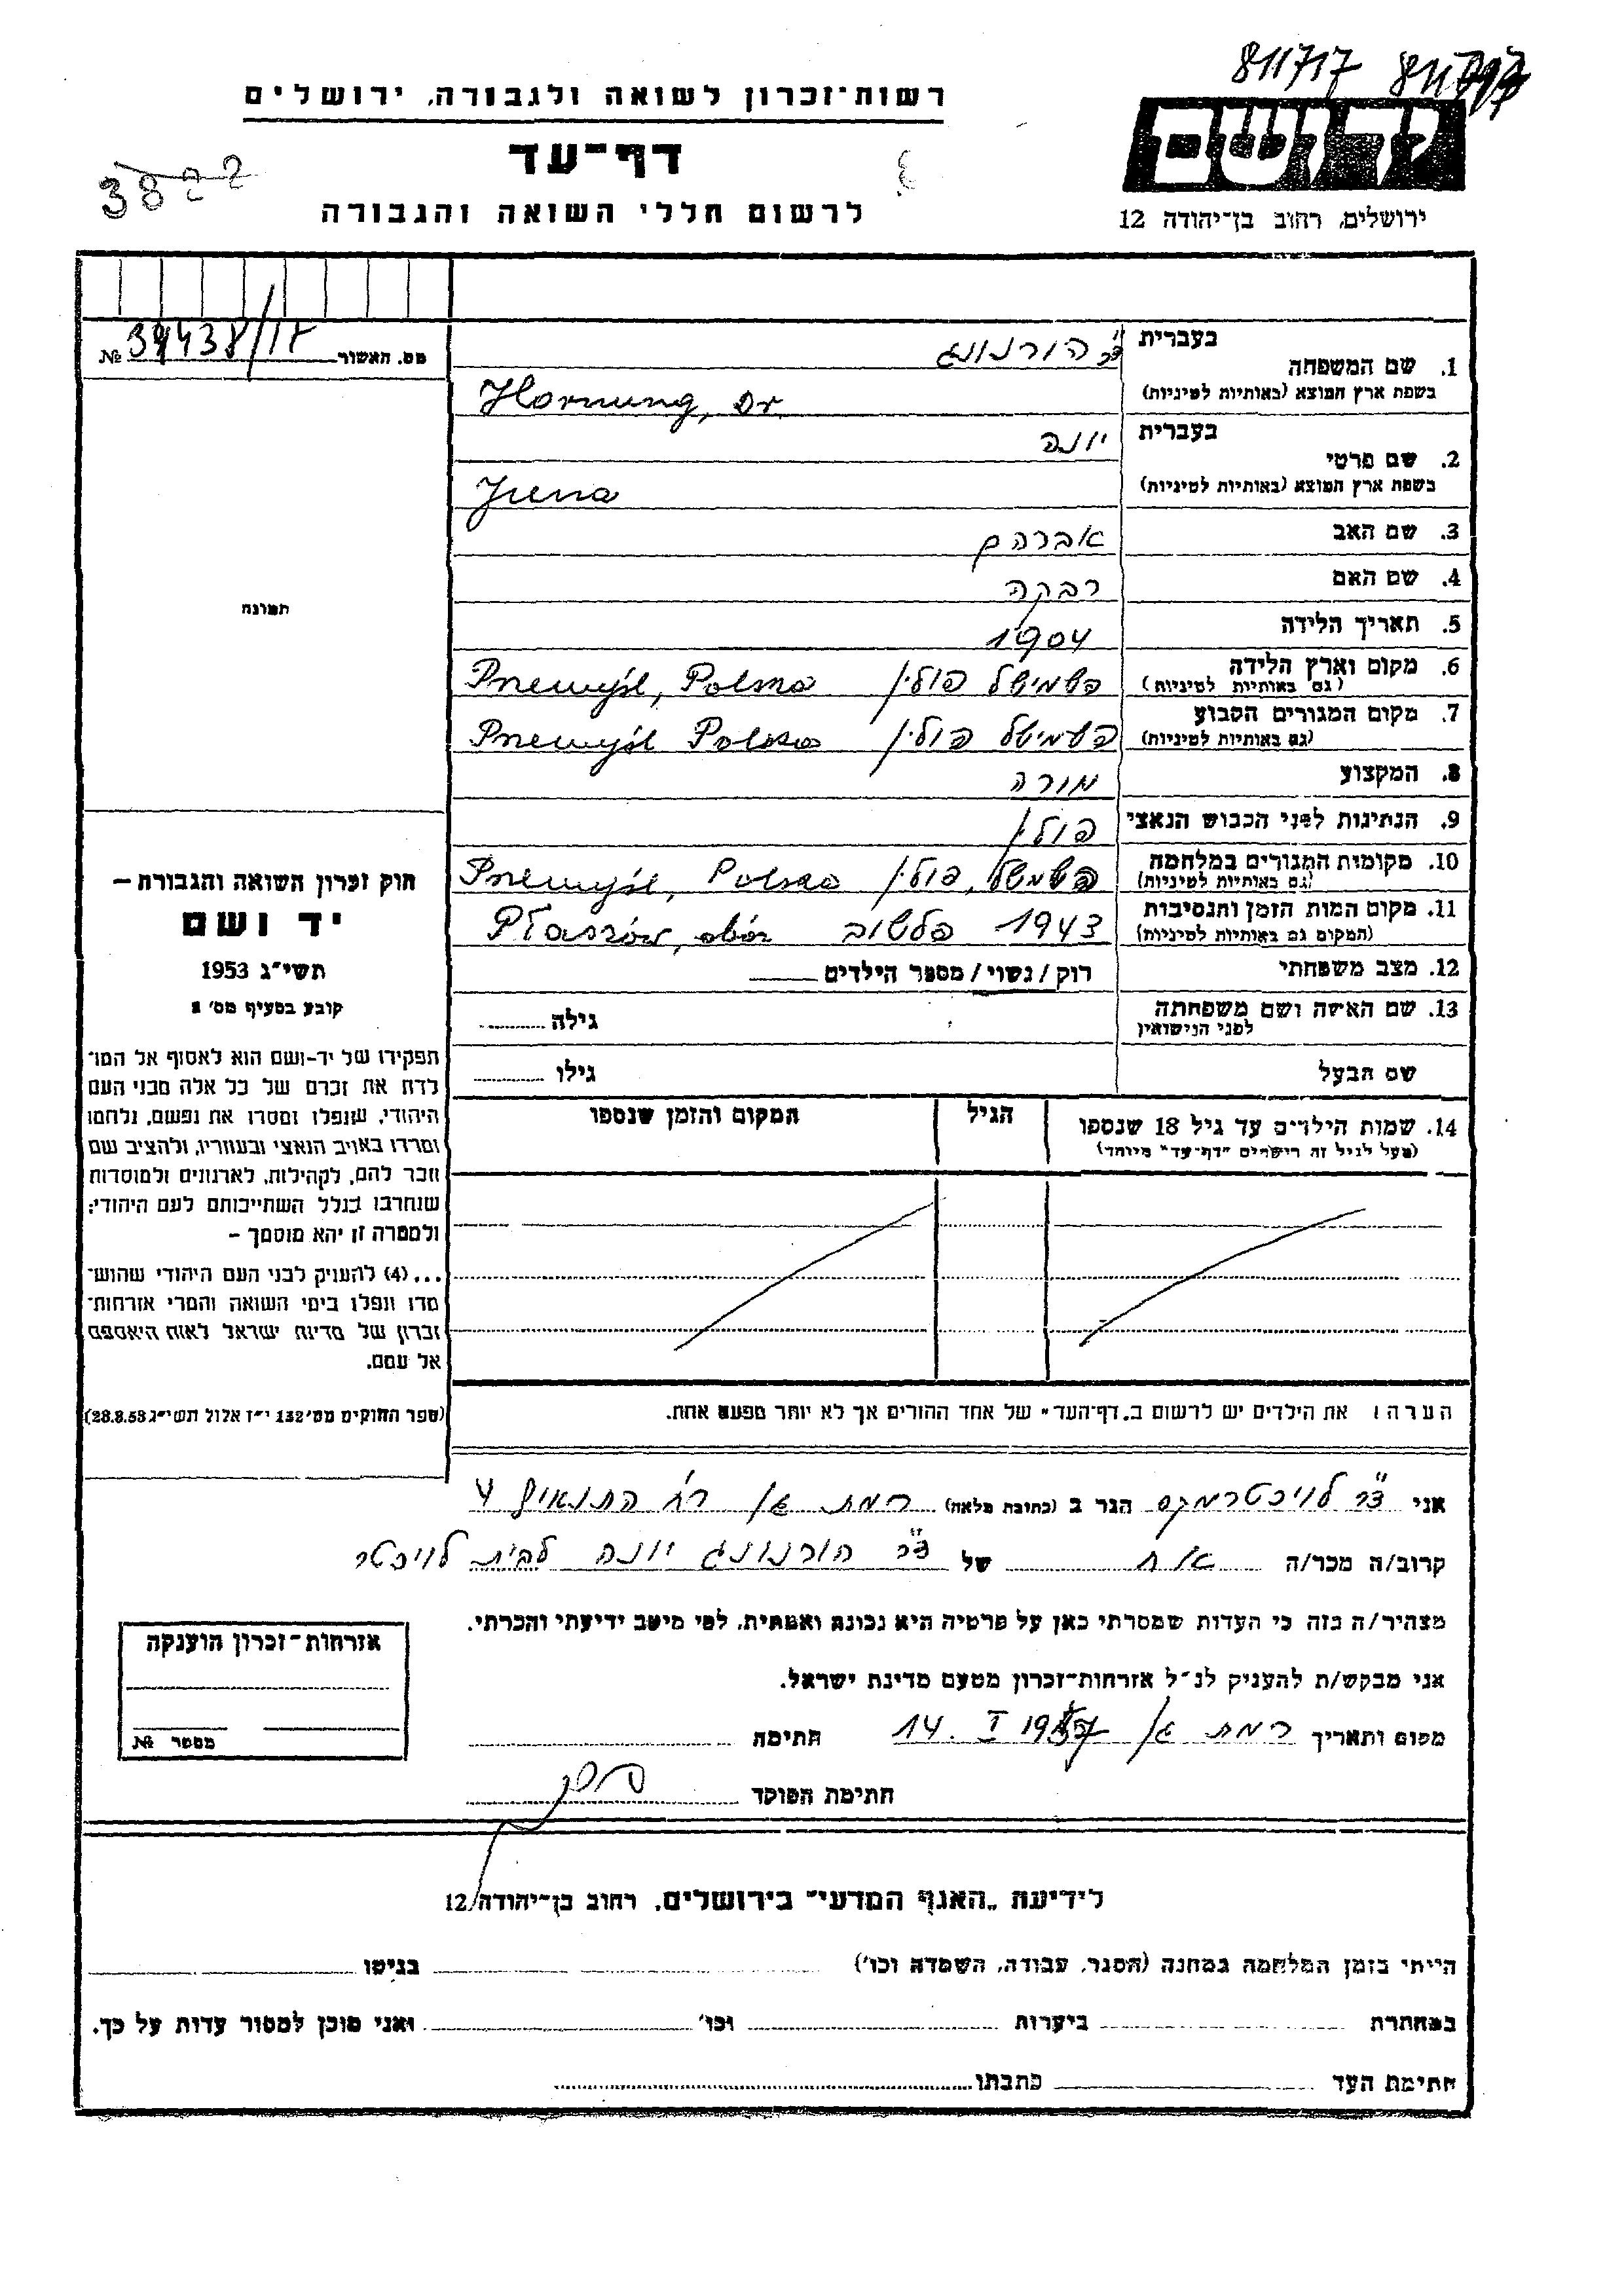 811717
רשות־זכרון לשואה ולגבורה, ירושלים
דף־עד
3822
לרשום חללי השואה והגבורה
ירושלים, רחוב בן־יהודה 12
מס. האשור № 39438/17
1. שם המשפחה בעברית ד"ר הורנונג
בשפת ארץ המוצא (באותיות לטיניות) Hornung, Dr.
2. שם פרטי בעברית יונה
בשפת ארץ המוצא (באותיות לטיניות)
3. שם האב אברהם
4. שם האם רבקה
תמונה
5. תאריך הלידה 1904
6. מקום וארץ הלידה (גם באותיות לטיניות) פשמישל פולין Przemyśl, Polska
7. מקום המגורים הקבוע (גם באותיות לטיניות) פשמישל פולין Przemyśl Polska
8. המקצוע מורה
9. הנתינות לפני הכבוש הנאצי פולין
10. מקומות המגורים במלחמה (גם באותיות לטיניות) פשמישל, פולין Przemyśl, Polska
11. מקום המות הזמן והנסיבות (המקום גם באותיות לטיניות) 1943 פלשוב Płaszów, obóz
12. מצב משפחתי רוק/נשוי/מספר הילדים
13. שם האישה ושם משפחתה לפני הנישואין גילה
שם הבעל גילו
14. שמות הילדים עד גיל 18 שנספו הגיל המקום והזמן שנספו
(מעל לגיל זה רישמים "דף־עד" מיוחד)
חוק זכרון השואה והגבורה –
יד ושם
תשי"ג 1953
קובע בסעיף מס' 2
תפקידו של יד־ושם הוא לאסוף אל המו־
לדת את זכרם של כל אלה מבני העם
היהודי, שנפלו ומסרו את נפשם, נלחמו
ומרדו באויב הנאצי ובעוזריו, ולהציב שם
וזכר להם, לקהילות, לארגונים ולמוסדות
שנחרבו בגלל השתייכותם לעם היהודי;
ולמטרה זו יהא מוסמך –
...(4) להעניק לבני העם היהודי שהוש־
מדו ונפלו בימי השואה והמרי אזרחות־
זכרון של מדינת ישראל לאות היאספם
אל עמם.
(ספר החוקים מס' 132 י"ז אלול תשי"ג 28.8.53)
הערה: את הילדים יש לרשום ב"דף־העד" של אחד ההורים אך לא יותר מפעם אחת.
אני ד"ר לויכטר מקס הגר ב (כתובת מלאה) רמת גן רח' 4
קרוב/ה מכר/ה אח של ד"ר הורנונג יונה לבית לויכטר
מצהיר/ה בזה כי העדות שמסרתי כאן על פרטיה היא נכונה ואמתית, לפי מיטב ידיעתי והכרתי.
אני מבקש/ת להעניק לנ"ל אזרחות־זכרון מטעם מדינת ישראל.
מקום ותאריך רמת גן 14. I 1957 חתימה
חתימת הפוקד
אזרחות־זכרון הוענקה
מספר №
לידיעת "האגף המדעי" בירושלים, רחוב בן־יהודה 12
הייתי בזמן המלחמה במחנה (הסגר, עבודה, השמדה וכו') בגיטו
במחתרת ביערות וכו' ואני מוכן למסור עדות על כך.
חתימת העד כתבתו